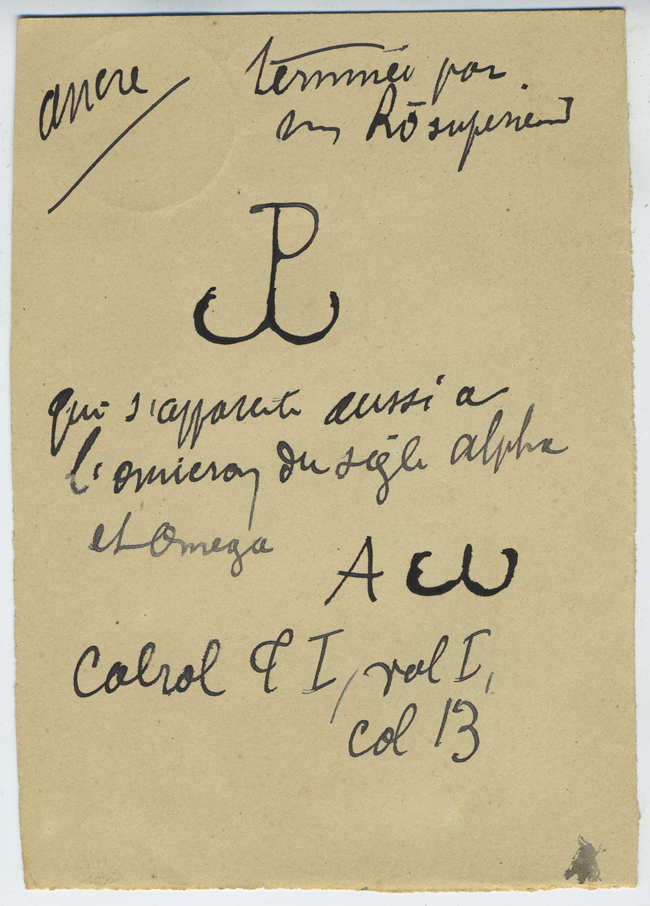 ancre / terminée par
un Rō superieur
P
qui s'apparente aussi a
l'omicron du sigle alpha
et Omega
A ω
Cabrol T I, vol I,
col 13